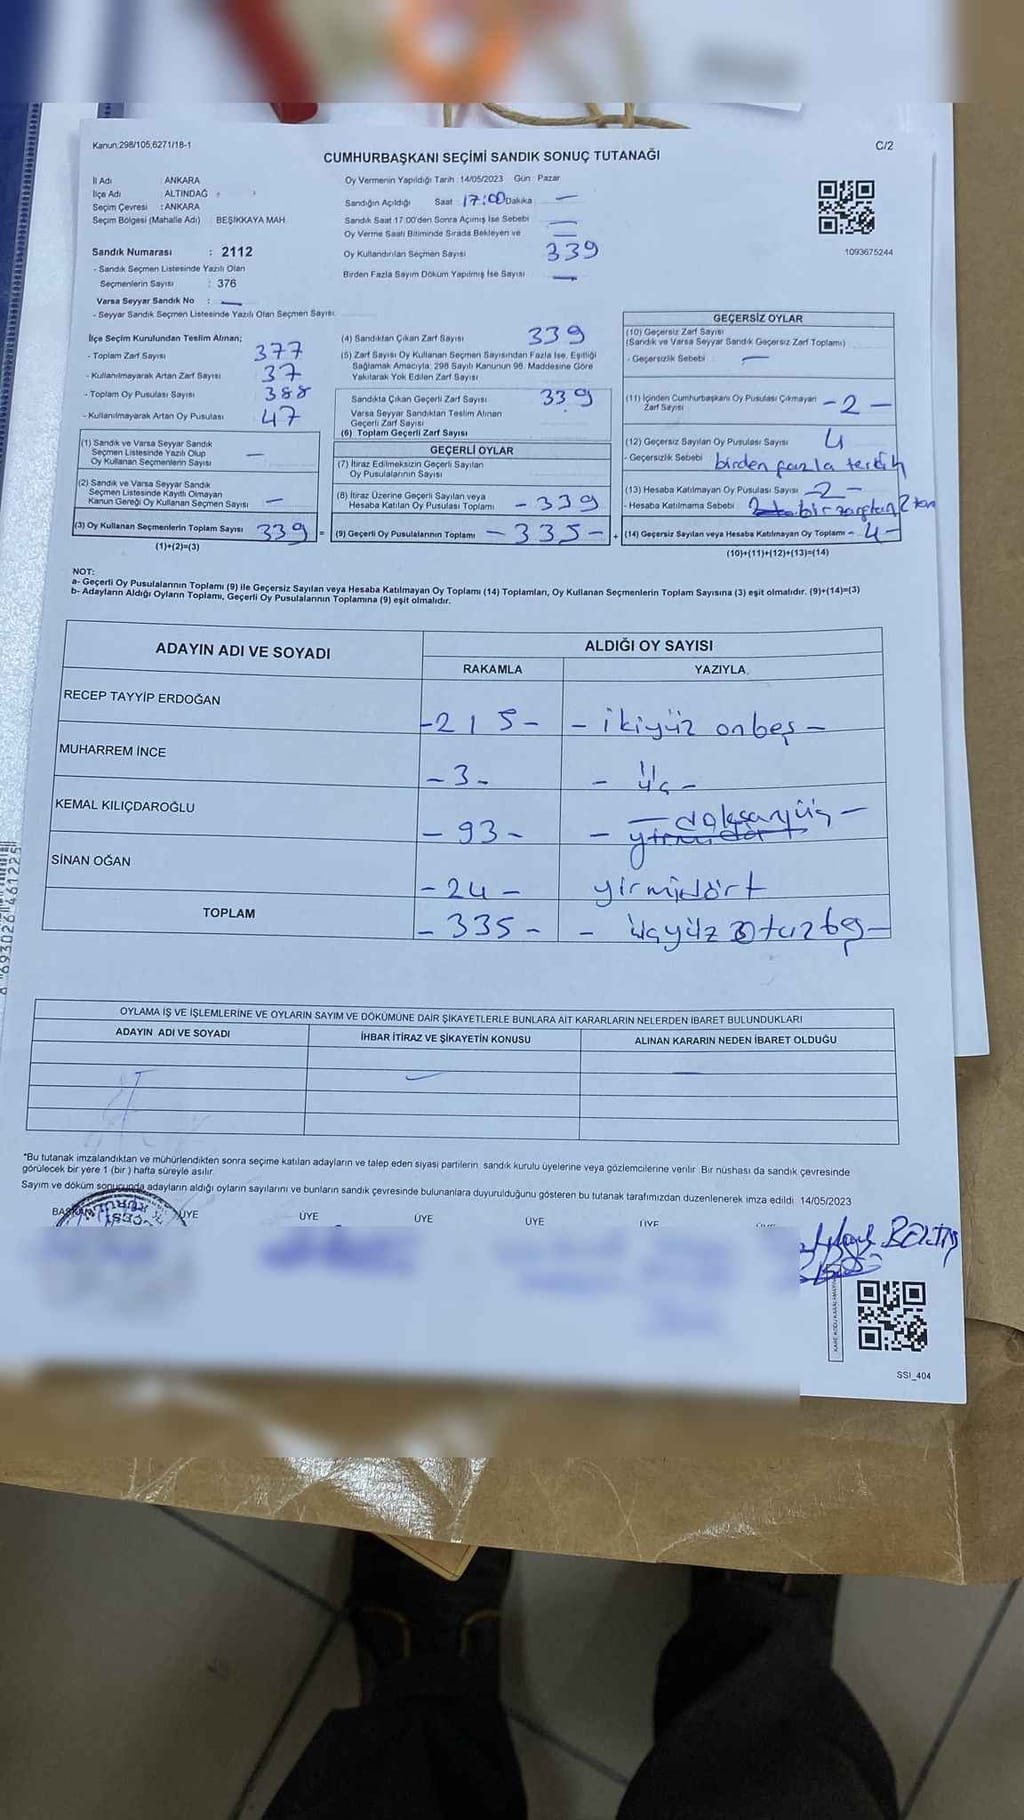 Kanun:298/105,6271/18-1
C/2
CUMHURBAŞKANI SEÇİMİ SANDIK SONUÇ TUTANAĞI
İl Adı : ANKARA
İlçe Adı : ALTINDAĞ
Seçim Çevresi : ANKARA
Seçim Bölgesi (Mahalle Adı) BEŞİKKAYA MAH.
Oy Vermenin Yapıldığı Tarih :14/05/2023 Gün : Pazar
Sandığın Açıldığı Saat 17:00 Dakika —
Sandık Saat 17.00'den Sonra Açımış İse Sebebi —
Oy Verme Saati Bitiminde Sırada Bekleyen ve —
Oy Kullandırılan Seçmen Sayısı 339
Birden Fazla Sayım Döküm Yapılmış İse Sayısı —
1093675244
Sandık Numarası : 2112
- Sandık Seçmen Listesinde Yazılı Olan
Seçmenlerin Sayısı : 376
Varsa Seyyar Sandık No : —
- Seyyar Sandık Seçmen Listesinde Yazılı Olan Seçmen Sayısı:
İlçe Seçim Kurulundan Teslim Alınan;
- Toplam Zarf Sayısı 377
- Kullanılmayarak Artan Zarf Sayısı 37
- Toplam Oy Pusulası Sayısı 388
- Kullanılmayarak Artan Oy Pusulası 47
(1) Sandık ve Varsa Seyyar Sandık
Seçmen Listesinde Yazılı Olup
Oy Kullanan Seçmenlerin Sayısı —
(2) Sandık ve Varsa Seyyar Sandık
Seçmen Listesinde Kayıtlı Olmayan
Kanun Gereği Oy Kullanan Seçmen Sayısı —
(3) Oy Kullanan Seçmenlerin Toplam Sayısı 339 =
(1)+(2)=(3)
(4) Sandıktan Çıkan Zarf Sayısı 339
(5) Zarf Sayısı Oy Kullanan Seçmen Sayısından Fazla İse, Eşitliği
Sağlamak Amacıyla, 298 Sayılı Kanunun 98. Maddesine Göre
Yakılarak Yok Edilen Zarf Sayısı
Sandıkta Çıkan Geçerli Zarf Sayısı 339
Varsa Seyyar Sandıktan Teslim Alınan
Geçerli Zarf Sayısı
(6) Toplam Geçerli Zarf Sayısı
GEÇERLİ OYLAR
(7) İtiraz Edilmeksizin Geçerli Sayılan
Oy Pusulalarının Sayısı
(8) İtiraz Üzerine Geçerli Sayılan veya
Hesaba Katılan Oy Pusulası Toplamı - 339
(9) Geçerli Oy Pusulalarının Toplamı - 335 - +
GEÇERSİZ OYLAR
(10) Geçersiz Zarf Sayısı
(Sandık ve Varsa Seyyar Sandık Geçersiz Zarf Toplamı)
- Geçersizlik Sebebi —
(11) İçinden Cumhurbaşkanı Oy Pusulası Çıkmayan
Zarf Sayısı - 2 -
(12) Geçersiz Sayılan Oy Pusulası Sayısı 4
- Geçersizlik Sebebi birden fazla tercih
(13) Hesaba Katılmayan Oy Pusulası Sayısı - 2 -
- Hesaba Katılmama Sebebi bir zarftan 2 tan
(14) Geçersiz Sayılan veya Hesaba Katılmayan Oy Toplamı - 4 -
(10)+(11)+(12)+(13)=(14)
NOT:
a- Geçerli Oy Pusulalarının Toplamı (9) ile Geçersiz Sayılan veya Hesaba Katılmayan Oy Toplamı (14) Toplamları, Oy Kullanan Seçmenlerin Toplam Sayısına (3) eşit olmalıdır. (9)+(14)=(3)
b- Adayların Aldığı Oyların Toplamı, Geçerli Oy Pusulalarının Toplamına (9) eşit olmalıdır.
ADAYIN ADI VE SOYADI
ALDIĞI OY SAYISI
RAKAMLA YAZIYLA
RECEP TAYYİP ERDOĞAN -215- - ikiyüz onbeş -
MUHARREM İNCE -3- - üç -
KEMAL KILIÇDAROĞLU -93- - doksanüç -
yirmidört
SİNAN OĞAN -24- yirmidört
TOPLAM -335- - üçyüz otuzbeş -
OYLAMA İŞ VE İŞLEMLERİNE VE OYLARIN SAYIM VE DÖKÜMÜNE DAİR ŞİKAYETLERLE BUNLARA AİT KARARLARIN NELERDEN İBARET BULUNDUKLARI
ADAYIN ADI VE SOYADI İHBAR İTİRAZ VE ŞİKAYETİN KONUSU ALINAN KARARIN NEDEN İBARET OLDUĞU
*Bu tutanak imzalandıktan ve mühürlendikten sonra seçime katılan adayların ve talep eden siyasi partilerin sandık kurulu üyelerine veya gözlemcilerine verilir. Bir nüshası da sandık çevresinde
görülecek bir yere 1 (bir ) hafta süreyle asılır.
Sayım ve döküm sonucunda adayların aldığı oyların sayılarını ve bunların sandık çevresinde bulunanlara duyurulduğunu gösteren bu tutanak tarafımızdan düzenlenerek imza edildi. 14/05/2023
ÜYE ÜYE ÜYE ÜYE ÜYE
SSI_404